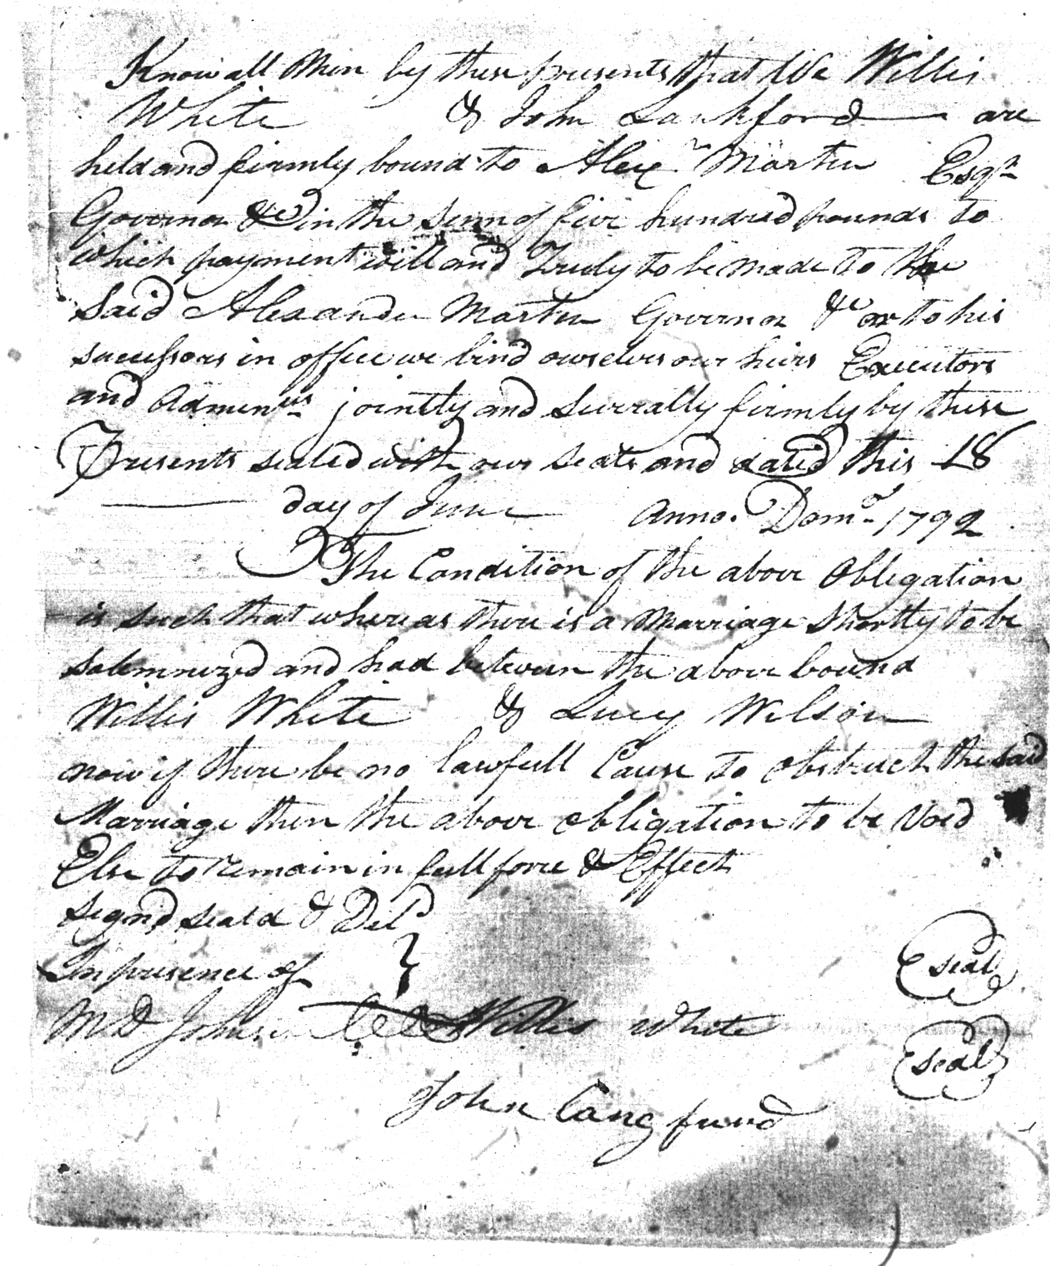 Know all Men by these presents that We Willis
White & John Lankford are
held and firmly bound to Alexr Martin Esqr
Governor &c in the Sum of five hundred pounds to
Which payment well and Truly to be made to the
Said Alexander Martin Governor &c or to his
successors in office we bind ourselves our heirs Executors
and Adminrs jointly and Severally firmly by these
Presents sealed with our seals and dated this 18
day of June Anno. Domo 1792
The Condition of the above Obligation
is such that whereas there is a Marriage Shortly to be
Solemnized and had between the above bound
Willis White & Lucy Wilson
now if there be no lawfull Cause to obstruct the said
Marriage then the above obligation to be Void
Else to remain in full force & Effect
Signd seald & Deld
In presence of
M D Johnson Willis White seal
seal
John Langfurd